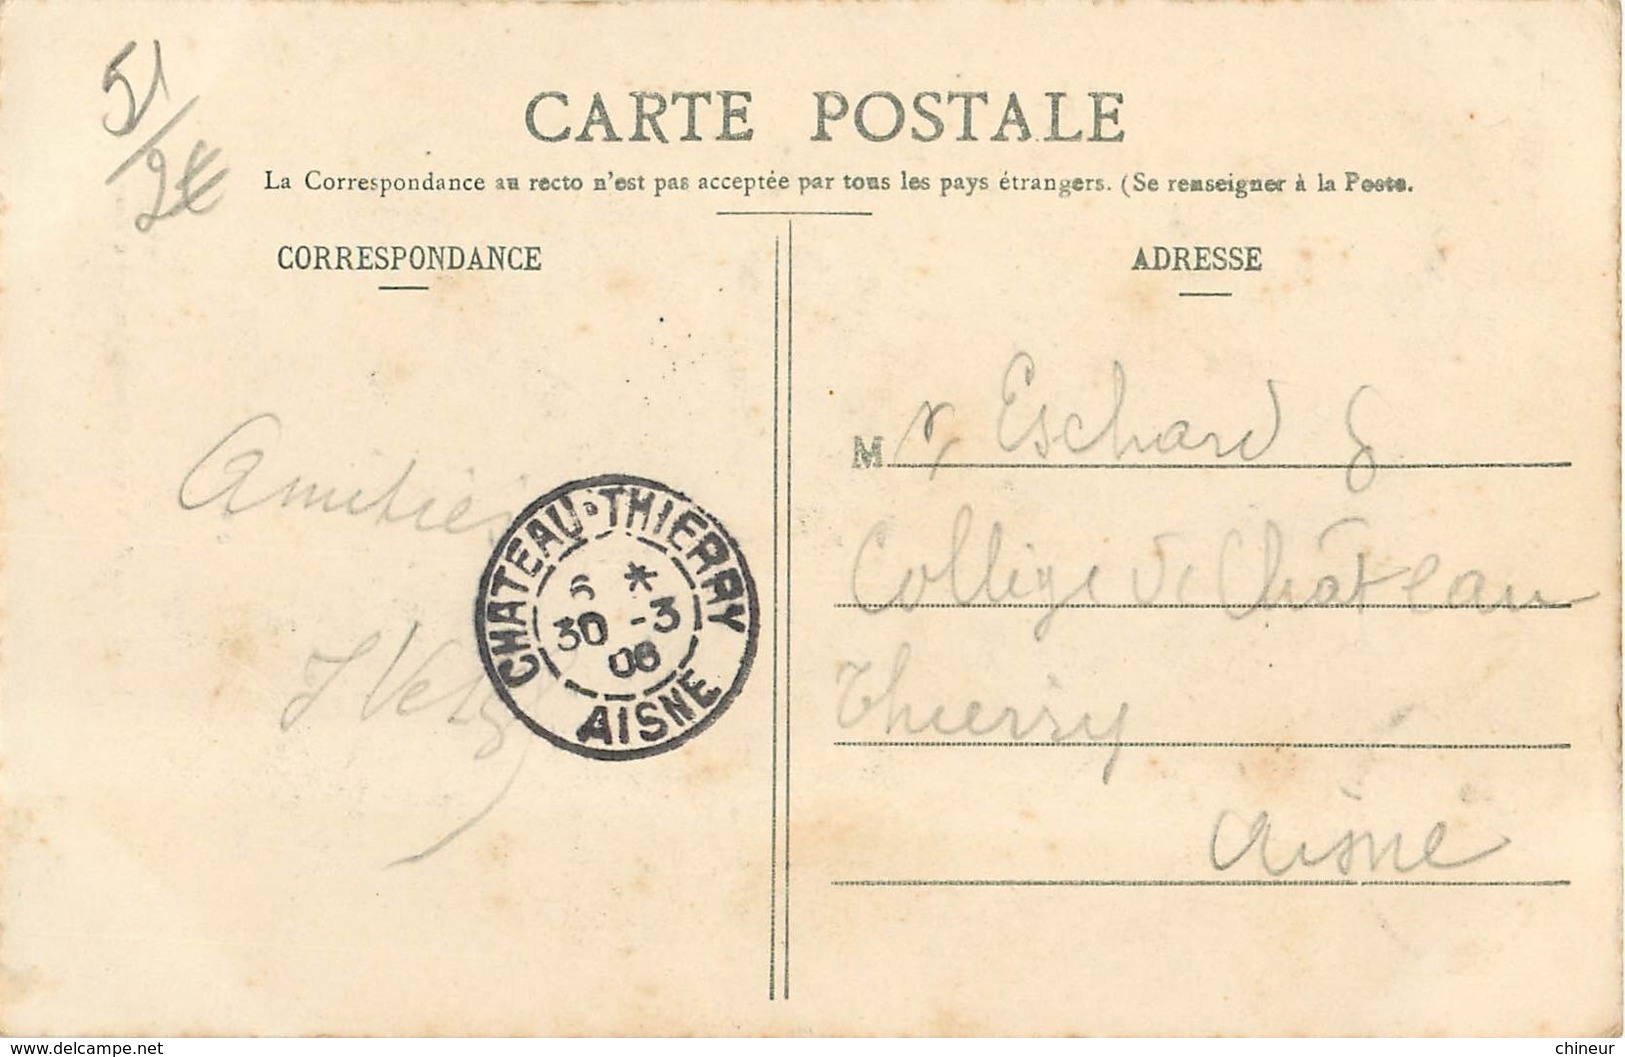 51/
2€
CARTE POSTALE
La Correspondance au recto n'est pas acceptée par tous les pays étrangers. (Se renseigner à la Poste.
CORRESPONDANCE
ADRESSE
Mr Eschard
Collège de Château
Thierry
Aisne
Amitiés
CHATEAU-THIERRY
6 *
30 -3
08
AISNE
www.delcampe.net
chineur